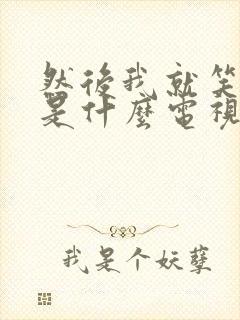 然後我就笑
是什麼電視
我是个妖孽